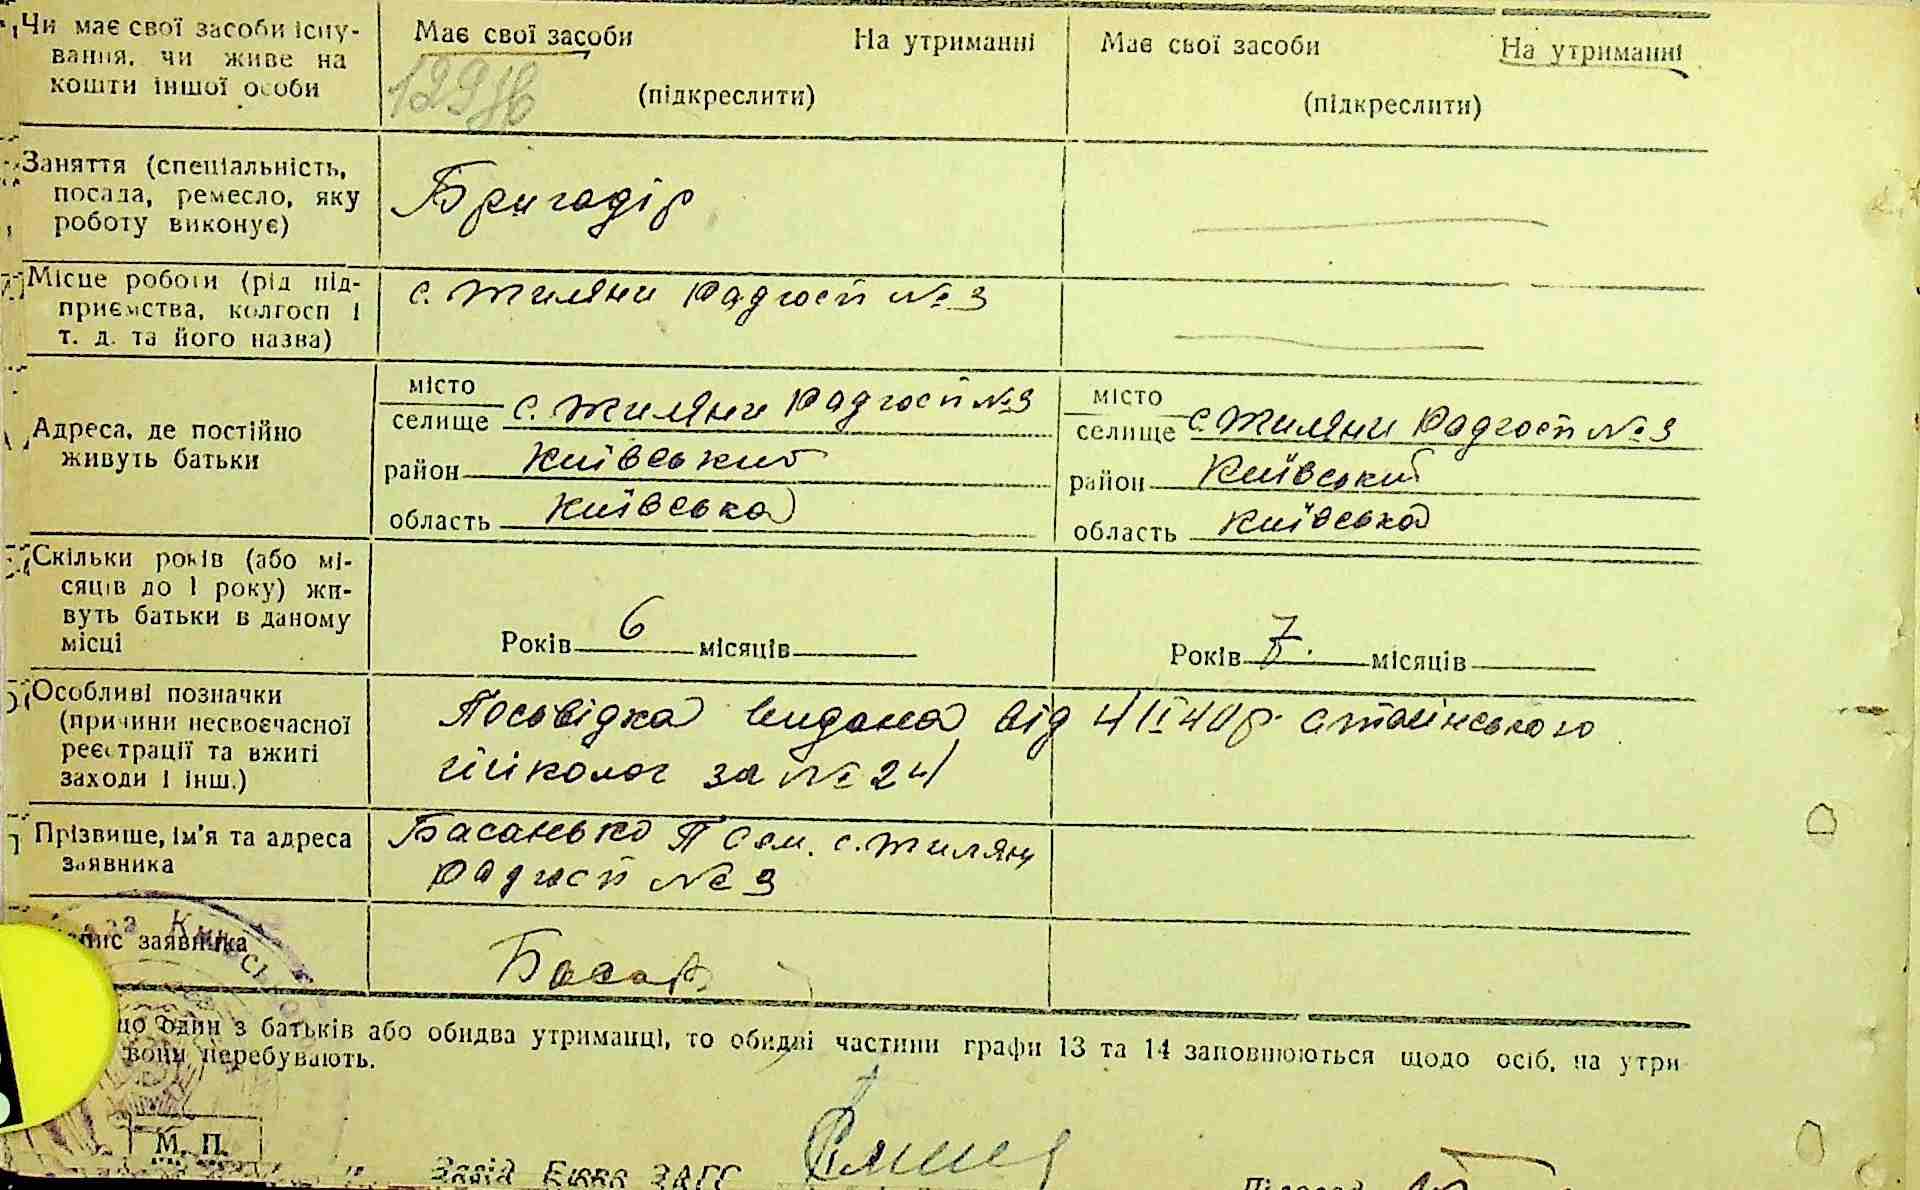 Чи має свої засоби існу-
вання, чи живе на
кошти іншої особи
Має свої засоби На утриманні
(підкреслити)
Має свої засоби На утриманні
(підкреслити)
Заняття (спеціальність,
посада, ремесло, яку
роботу виконує)
Бригадір
Місце роботи (рід під-
приємства, колгосп і
т. д. та його назва)
с. Жиляни Радгосп № 3
Адреса, де постійно
живуть батьки
місто
селище с. Жиляни Радгосп № 3
район Київський
область Київська
місто
селище с. Жиляни Радгосп № 3
район Київський
область Київська
Скільки років (або мі-
сяців до 1 року) жи-
вуть батьки в даному
місці
Років 6 місяців
Років 7 місяців
Особливі позначки
(причини несвоєчасної
реєстрації та вжиті
заходи і інш.)
Посвідка видана від 4/II 40 р. сталінського
за № 24
Прізвище, ім'я та адреса
заявника
Басанько П Сем. с. Жиляни
Радгосп № 3
заявника
Басан
один з батьків або обидва утриманці, то обидві частини графи 13 та 14 заповнюються щодо осіб, на утри
вони перебувають.
М. П.
Завід. Бюро ЗАГС